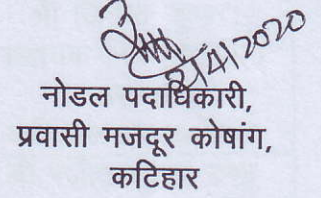 2/4/2020
नोडल पदाधिकारी,
प्रवासी मजदूर कोषांग,
कटिहार